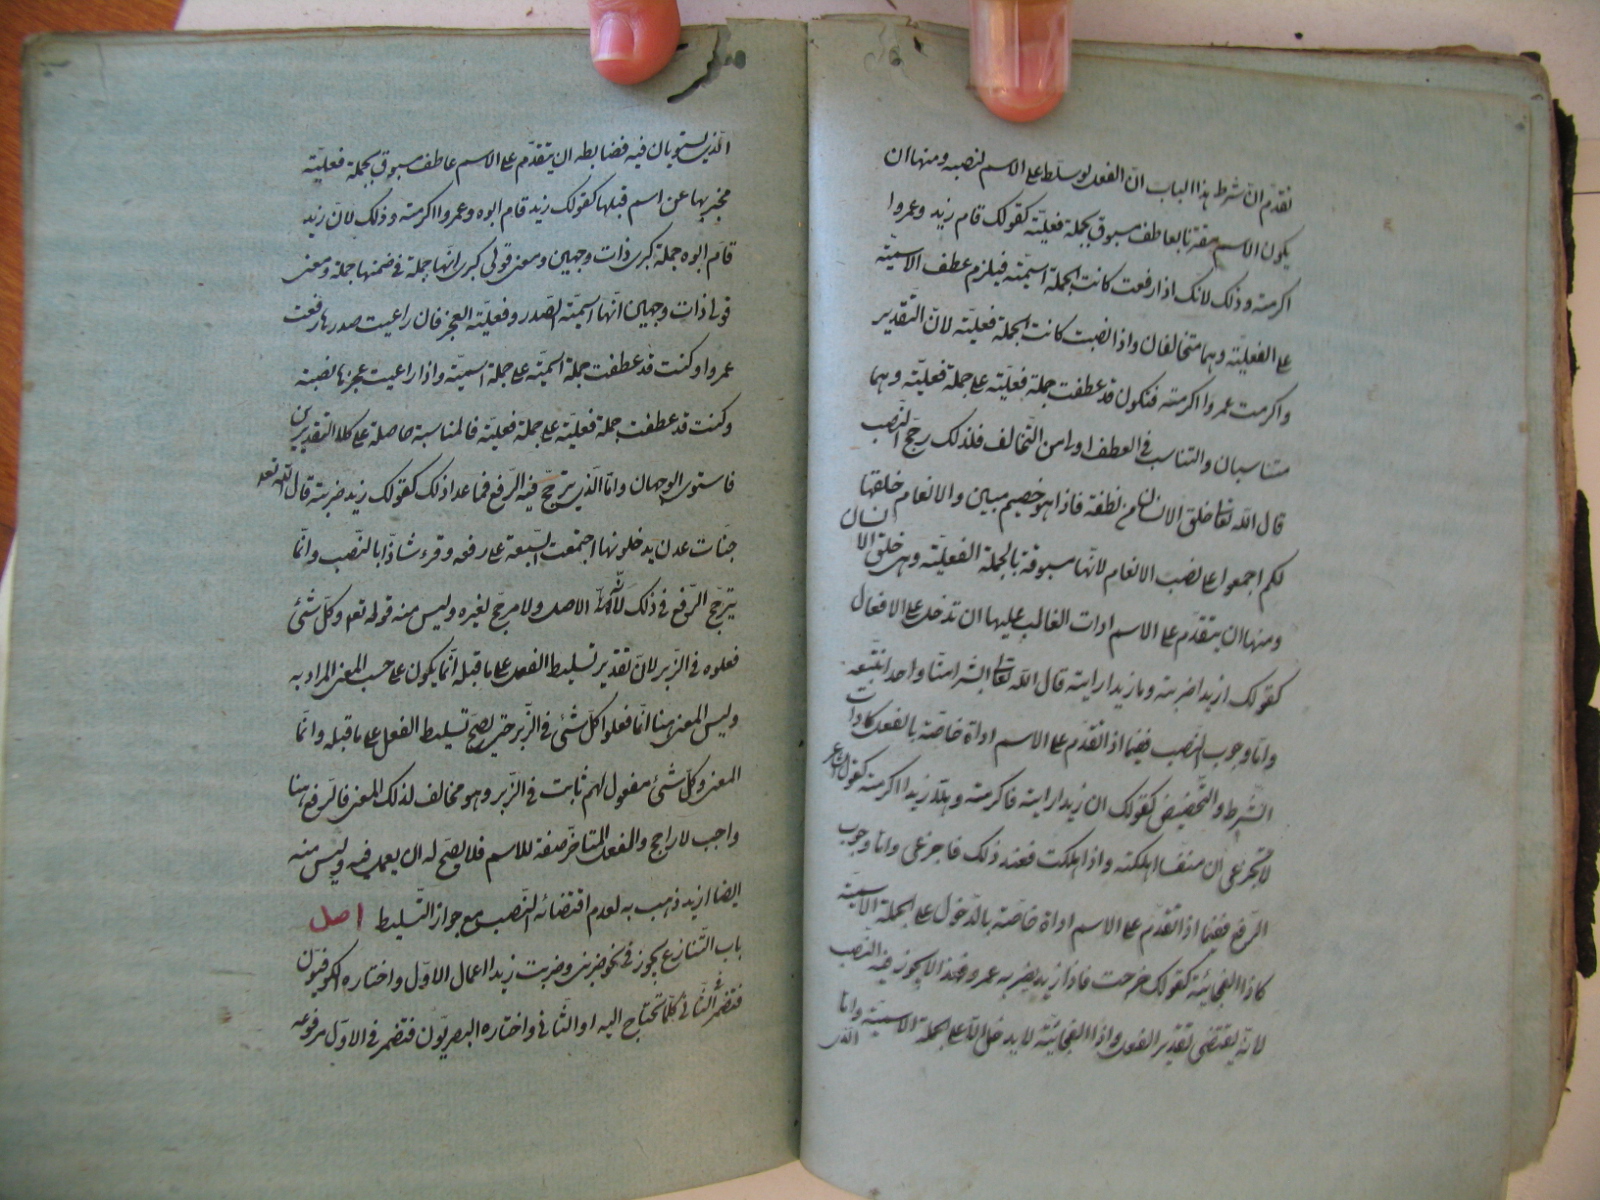 تقدّم انّ شرط هذا الباب انّ الفعل لو سلّط على الاسم لنصبه ومنها ان
يكون الاسم مقترنا بعاطف مسبوق بجملة فعليّة كقولك قام زيد وعمروا
اكرمته وذلك لانك اذا رفعت كانت الجملة اسميّة فيلزم عطف الاسميّة
على الفعليّة وهما متخالفان واذا نصبت كانت الجملة فعليّة لانّ التقدير
واكرمت عمروا اكرمته فتكون قد عطفت جملة فعليّة على جملة فعليّة وهما
متناسبان والتناسب في العطف اولى من التخالف فلذلك رجّح النّصب
قال الله تعالى خلق الانسان من نطفة فاذا هو خصيم مبين والانعام خلقها
لكم اجمعوا على نصب الانعام لانّها مسبوقة بالجملة الفعليّة وهي خلق الانسان
ومنها ان يتقدّم على الاسم ادات الغالب عليها ان تدخل على الافعال
كقولك ازيدا ضربته وما زيدا رايته قال الله تعالى ابشرا منّا واحدا نتّبعه
وامّا وجوب النّصب ففيما اذا تقدّم على الاسم اداة خاصّة بالفعل كادات
الشرط والتّحضيض كقولك ان زيدا رايته فاكرمته وهلّا زيدا اكرمته كقول الشاعر
لا تجزعي ان منفسا اهلكته واذا هلكت فعند ذلك فاجزعي وامّا وجوب
الرّفع ففيما اذا تقدّم على الاسم اداة خاصّة بالدّخول على الجملة الاسميّة
كاذا الفجائيّة كقولك خرجت فاذا زيد يضربه عمرو فهذا لا يجوز فيه النّصب
لانّه يقتضي تقدير الفعل واذا الفجائيّة لا يدخل الّا على الجملة الاسميّة وامّا
الذي
الّذي يستويان فيه فضابطه ان يتقدّم على الاسم عاطف مسبوق بجملة فعليّة
مخبر بها عن اسم قبلها كقولك زيد قام ابوه وعمروا اكرمته وذلك لانّ زيد
قام ابوه جملة كبرى ذات وجهين ومعنى قولي كبرى انّها جملة في ضمنها جملة ومعنى
قولي ذات وجهين انّها اسميّة الصّدر وفعليّة العجز فان راعيت صدرها رفعت
عمروا وكنت قد عطفت جملة اسميّة على جملة اسميّة واذا راعيت عجزها نصبته
وكنت قد عطفت جملة فعليّة على جملة فعليّة فالمناسبة حاصلة على كلا التقديرين
فاستوى الوجهان وامّا الّذي يترجّح فيه الرّفع فما عدا ذلك كقولك زيد ضربته قال الله تعم
جنّات عدن يدخلونها اجتمعت السّبعة على رفعه وقرء شاذّا بالنّصب وانّما
يترجّح الرّفع في ذلك لانّه الاصل ولا مرجّح لغيره وليس منه قوله تعم وكلّ شئ
فعلوه في الزّبر لانّ تقدير تسليط الفعل على ما قبله انّما يكون على حسب المعنى المراد به
وليس المعنى هنا انّما فعلوا كلّ شئ في الزّبر حتى يصحّ تسليط الفعل على ما قبله وانّما
المعنى وكلّ شئ مفعول لهم ثابت في الزّبر وهو مخالف لذلك المعنى فالرّفع هنا
واجب لا راجح والفعل المتاخّر صفة للاسم فلا يصحّ له ان يعمل فيه وليس منه
ايضا ازيد ذهب به لعدم اقتضائه النّصب مع جواز التّسليط اصل
باب التّنازع يجوز في نحو ضربني وضربت زيدا اعمال الاوّل واختاره الكوفيّون
فتضمر في الثّاني كلّما تحتاج اليه او الثّاني واختاره البصريّون فتضمر في الاوّل مرفوعه